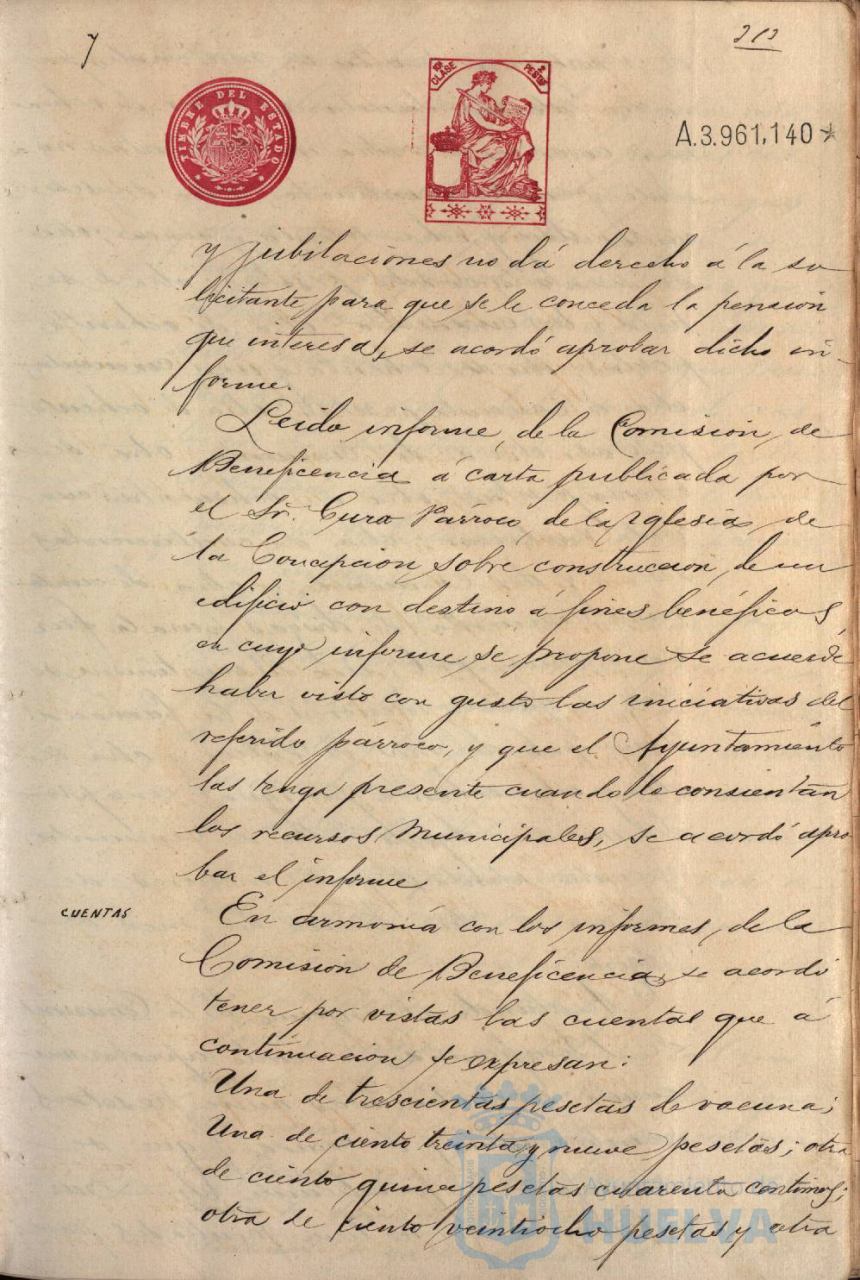 y
212
TIMBRE DEL ESTADO
10ª CLASE
2 PESETAS
A.3.961,140*
y jubilaciones no dá derecho á la so
licitante para que se le conceda la pensión
que interesa, se acordó aprobar dicho in-
forme.
Leido informe de la Comisión de
Beneficencia á carta publicada por
el Sr. Cura Párroco de la Iglesia de
la Concepcion sobre construccion de un
edificio con destino á fines benéficos,
en cuyo informe se propone se acuerde
haber visto con gusto las iniciativas del
referido párroco, y que el Ayuntamiento
las tenga presente cuando lo consientan
los recursos Municipales, se acordó apro
bar el informe
CUENTAS
En armonía con los informes de la
Comisión de Beneficencia se acordó
tener por vistas las cuentas que á
continuacion se expresan:
Una de trescientas pesetas de vacuna;
Una de ciento treinta y nueve pesetas; otra
de ciento quince pesetas cuarenta centimos;
otra de ciento veintiocho pesetas y otra
Ayuntamiento de
HUELVA